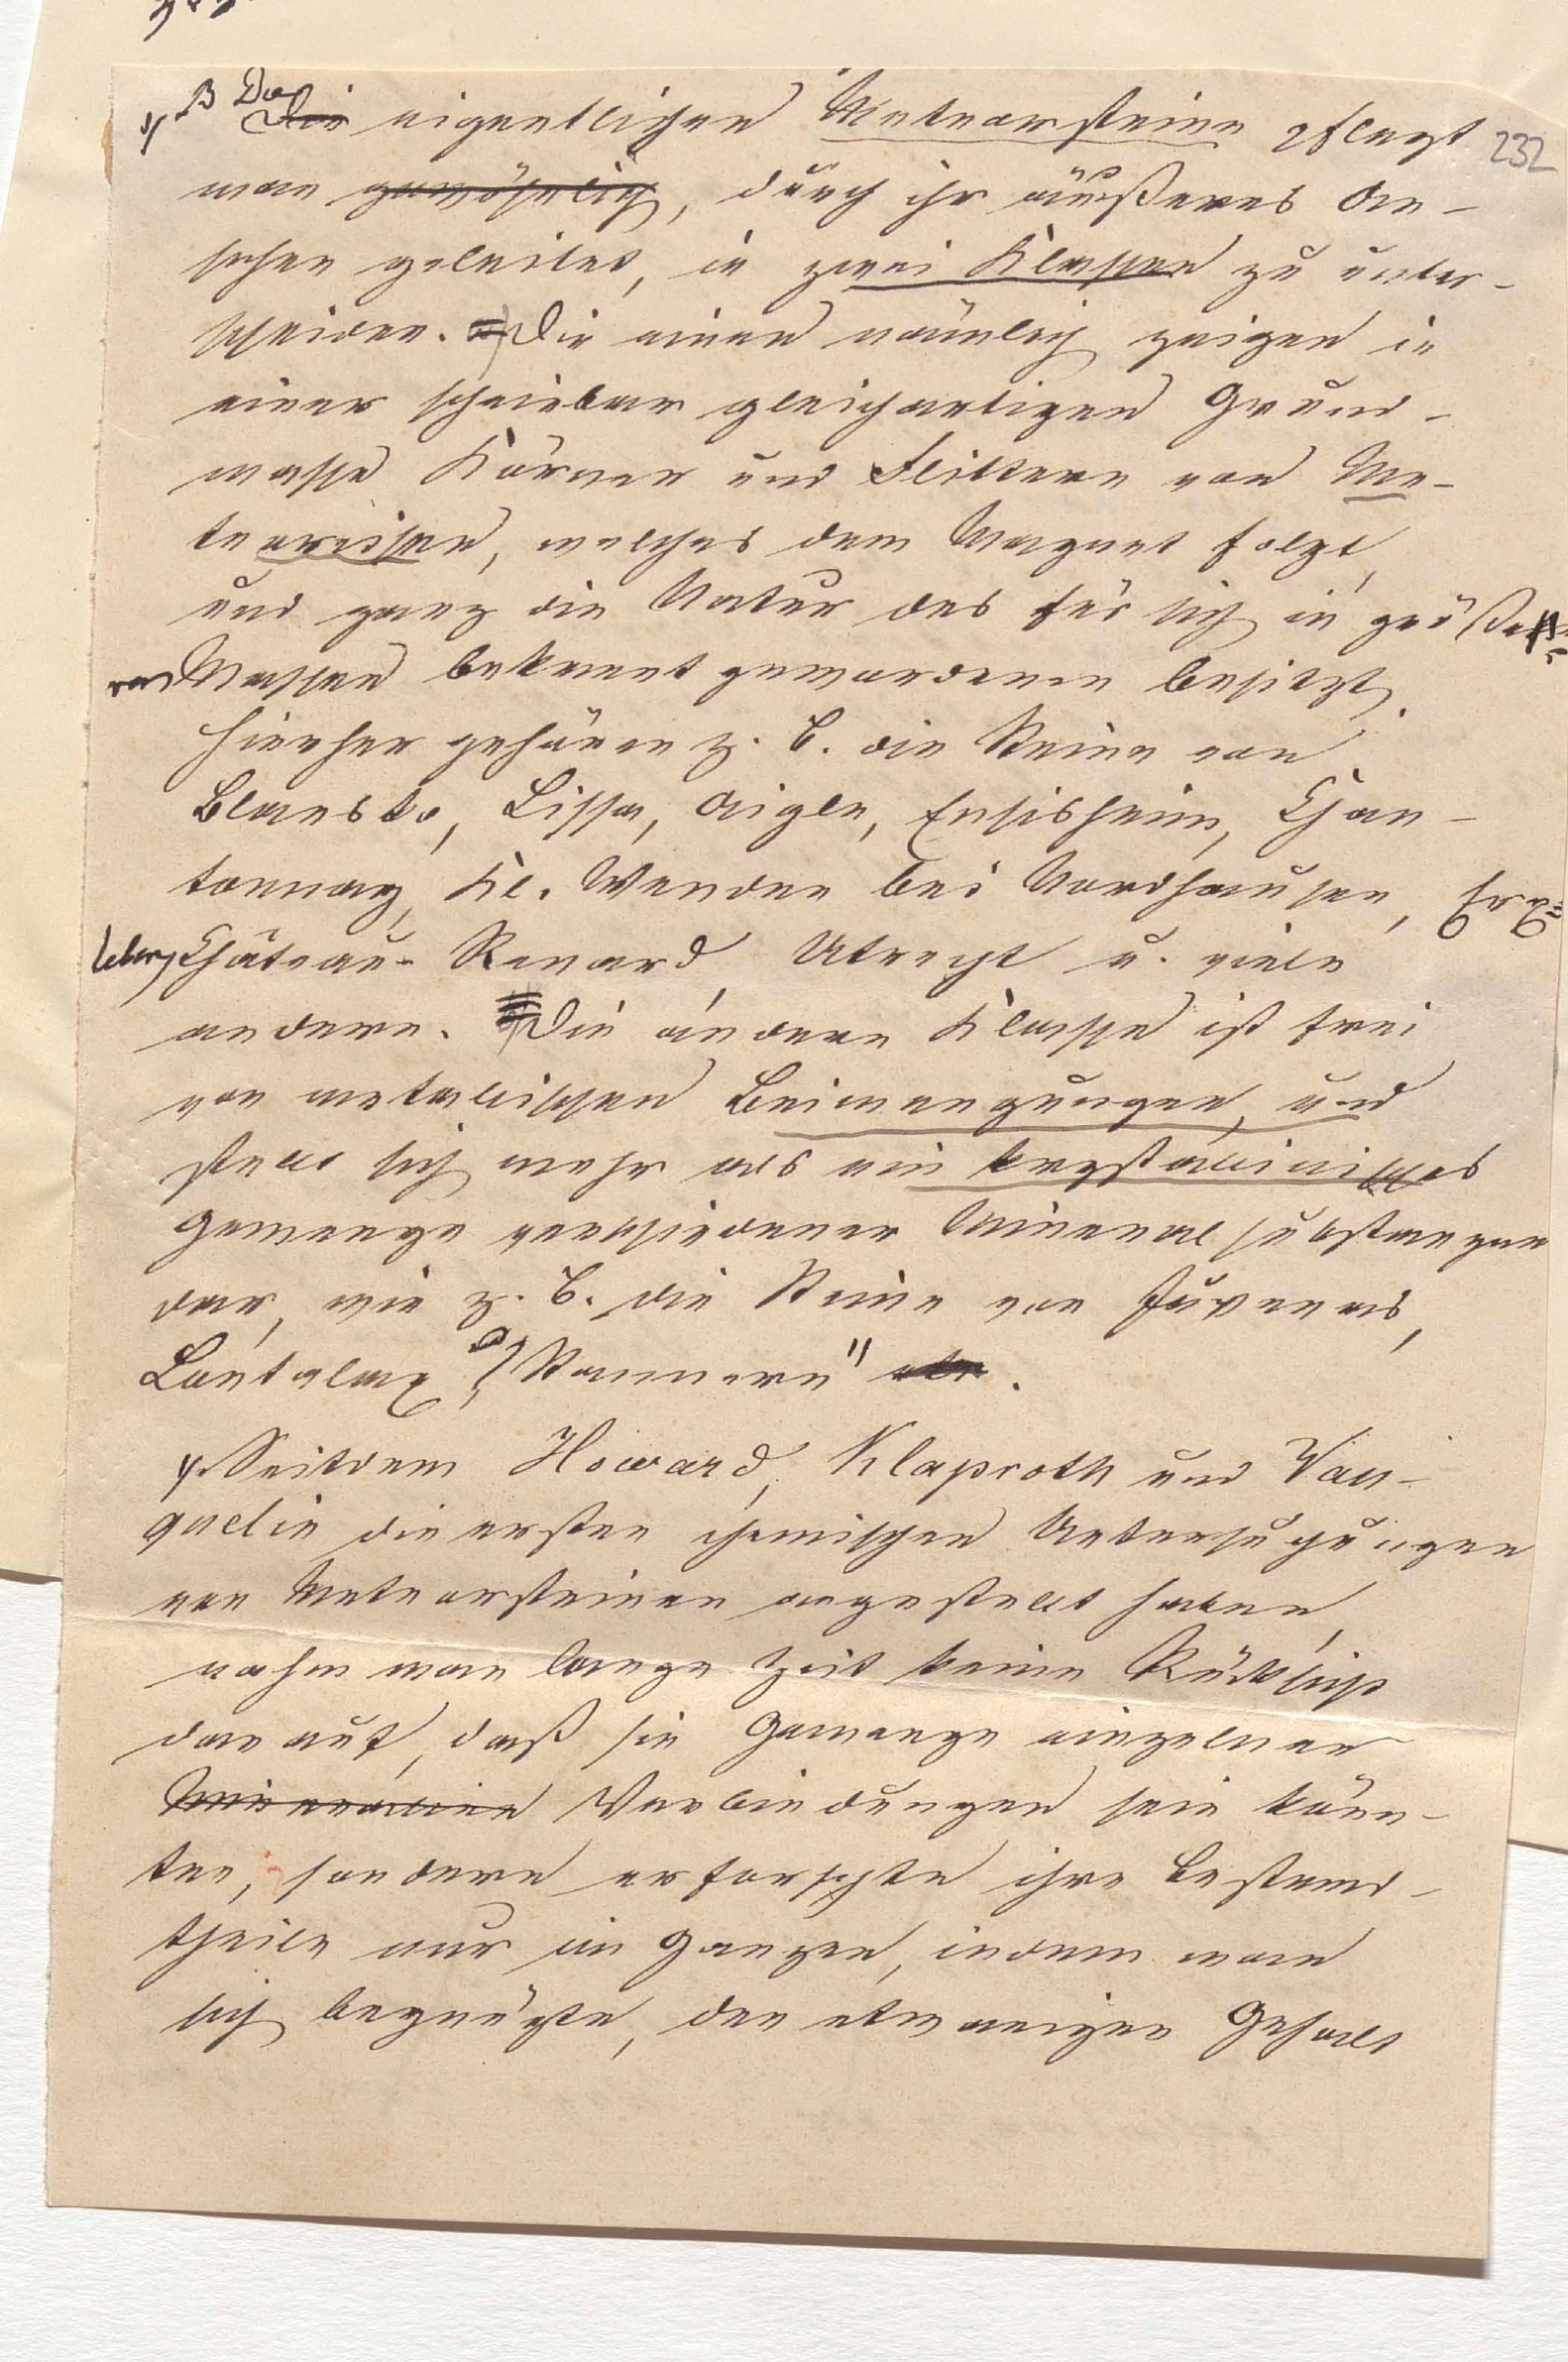 232
B Die eigentlichen Meteorsteine pflegt
man gewöhnlich, durch ihr äußeres An-
sehen geleitet, in zwei Klassen zu unter-
scheiden. Die einen nämlich zeigen in
einer scheinbar gleichartigen Grund-
masse Körner und Flittern von Me-
teoreisen, welches dem Magnet folgt,
und ganz die Natur des für sich in größe-
ren Massen bekannt gewordenen besitzt.
Hierher gehören z. B. die Steine von
Blansko, Lissa, Aigle, Ensisheim, Chan-
tonnay, Kl. Wenden bei Nordhausen, Erx-
leben, Château-Renard, Utrecht u. viele
andere. Die andere Klasse ist frei
von metallischen Beimengungen, und
stellt sich mehr als ein krystallinisches
Gemenge verschiedener Mineralsubstanzen
dar, wie z. B. die Steine von Juvenas,
Lontalax, Stannern" etc.
Seitdem Howard, Klaproth und Vau-
quelin die ersten chemischen Untersuchungen
von Meteorsteinen angestellt haben,
nahm man lange Zeit keine Rücksicht
darauf, daß sie Gemenge einzelner
Mineralien Verbindungen sein könn-
ten, sondern erforschte ihre Bestand-
theile nur im Ganzen, indem man
sich begnügte, den etwaigen Gehalt